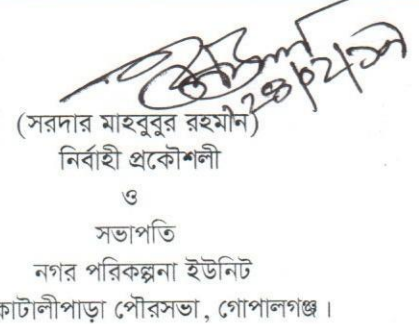 (সরদার মাহবুবুর রহমান)
নির্বাহী প্রকৌশলী
ও
সভাপতি
নগর পরিকল্পনা ইউনিট
কোটালীপাড়া পৌরসভা, গোপালগঞ্জ।